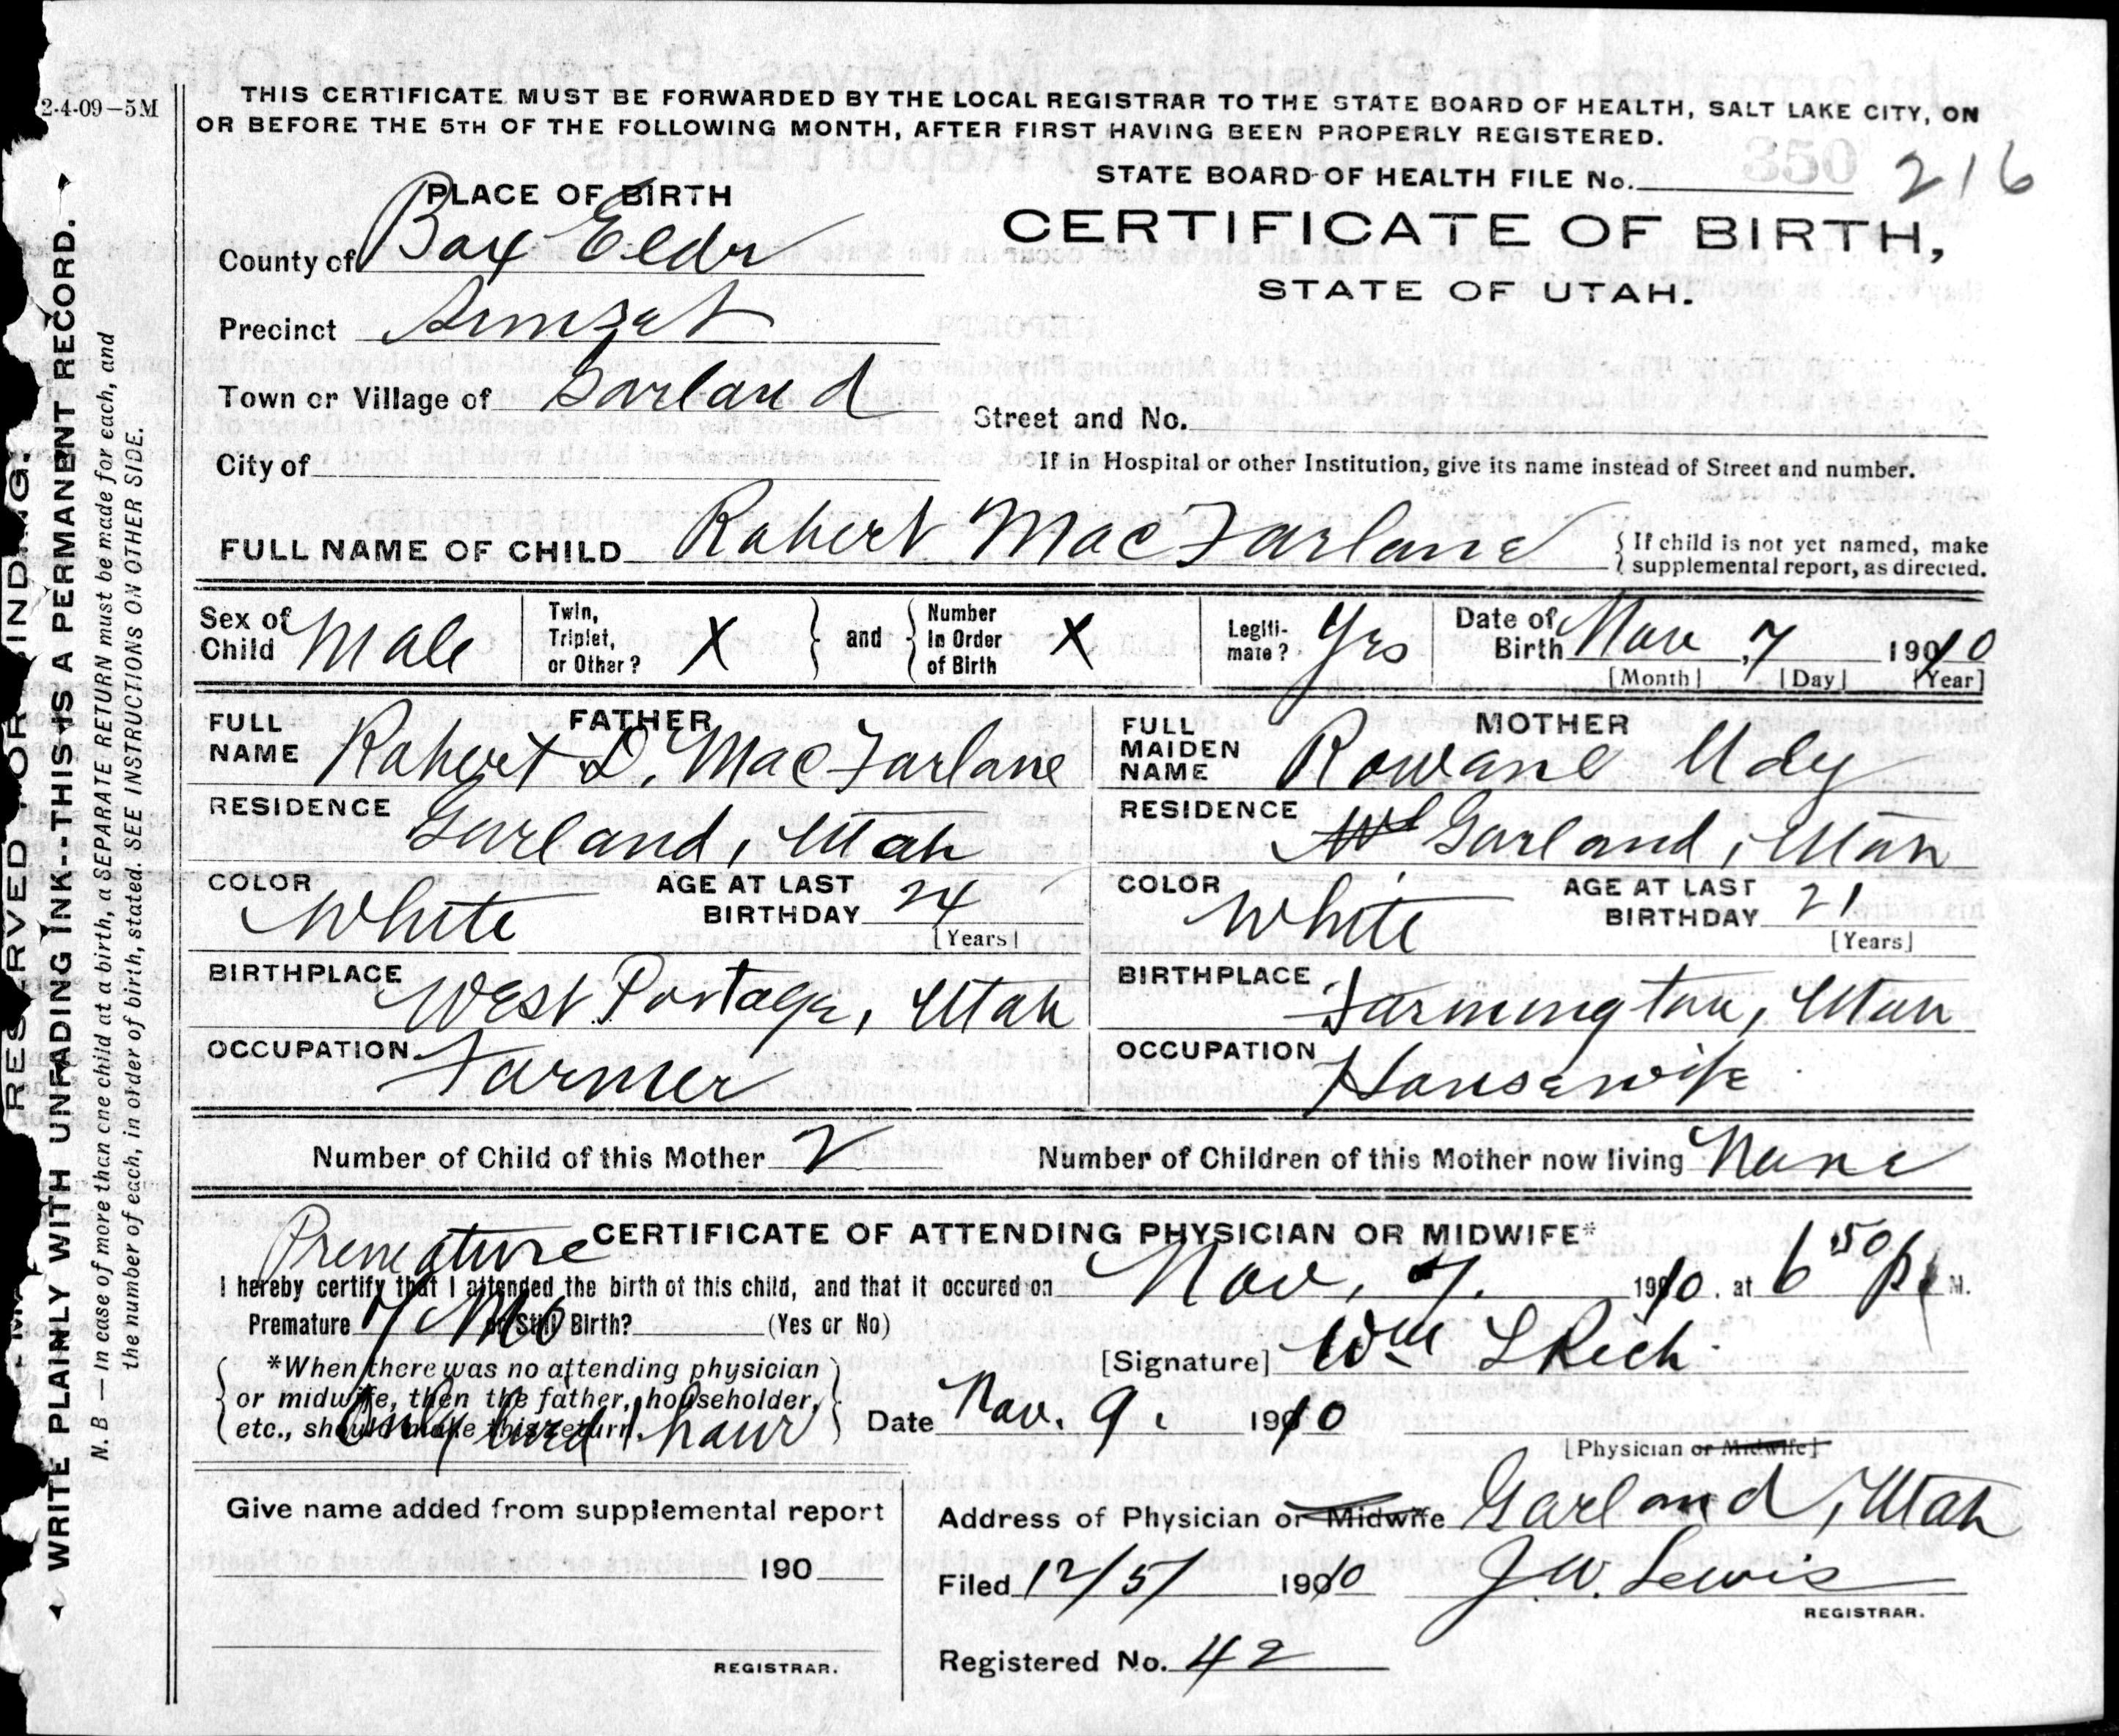 2-4-09-5M
THIS CERTIFICATE MUST BE FORWARDED BY THE LOCAL REGISTRAR TO THE STATE BOARD OF HEALTH, SALT LAKE CITY, ON
OR BEFORE THE 5TH OF THE FOLLOWING MONTH, AFTER FIRST HAVING BEEN PROPERLY REGISTERED.
STATE BOARD OF HEALTH FILE No. 350 216
CERTIFICATE OF BIRTH,
STATE OF UTAH.
PLACE OF BIRTH
County of Box Eldr
Precinct Sunset
Town or Village of Garland
Street and No.
City of
If in Hospital or other Institution, give its name instead of Street and number.
FULL NAME OF CHILD Robert MacFarlane
{ If child is not yet named, make
supplemental report, as directed.
Sex of Child Male
Twin, Triplet, or Other? X } and { Number In Order of Birth X
Legiti-mate? Yes
Date of Birth Nov 7 1910
[Month] [Day] [Year]
FATHER
FULL NAME Robert D. MacFarlane
RESIDENCE Garland, Utah
COLOR White
AGE AT LAST BIRTHDAY 24
[Years]
BIRTHPLACE West Portage, Utah
OCCUPATION Farmer
MOTHER
FULL MAIDEN NAME Rowane Udy
RESIDENCE Garland, Utah
COLOR White
AGE AT LAST BIRTHDAY 21
[Years]
BIRTHPLACE Farmington, Utah
OCCUPATION Housewife
Number of Child of this Mother 2
Number of Children of this Mother now living None
CERTIFICATE OF ATTENDING PHYSICIAN OR MIDWIFE*
Premature
I hereby certify that I attended the birth of this child, and that it occured on Nov. 7. 1910. at 6 50 P. M.
Premature 7 Mo or Still Birth? (Yes or No)
{ *When there was no attending physician
or midwife, then the father, householder,
etc., should make this return. }
Only lived 1 hour
[Signature] Wm L Rich
Date Nov. 9. 1910
[Physician or Midwife]
Give name added from supplemental report
190
REGISTRAR.
Address of Physician or Midwife Garland, Utah
Filed 12/5/ 1910 J.W. Lewis
REGISTRAR.
Registered No. 42
WRITE PLAINLY WITH UNFADING INK--THIS IS A PERMANENT RECORD.
N. B.—In case of more than one child at a birth, a SEPARATE RETURN must be made for each, and
the number of each, in order of birth, stated. SEE INSTRUCTIONS ON OTHER SIDE.